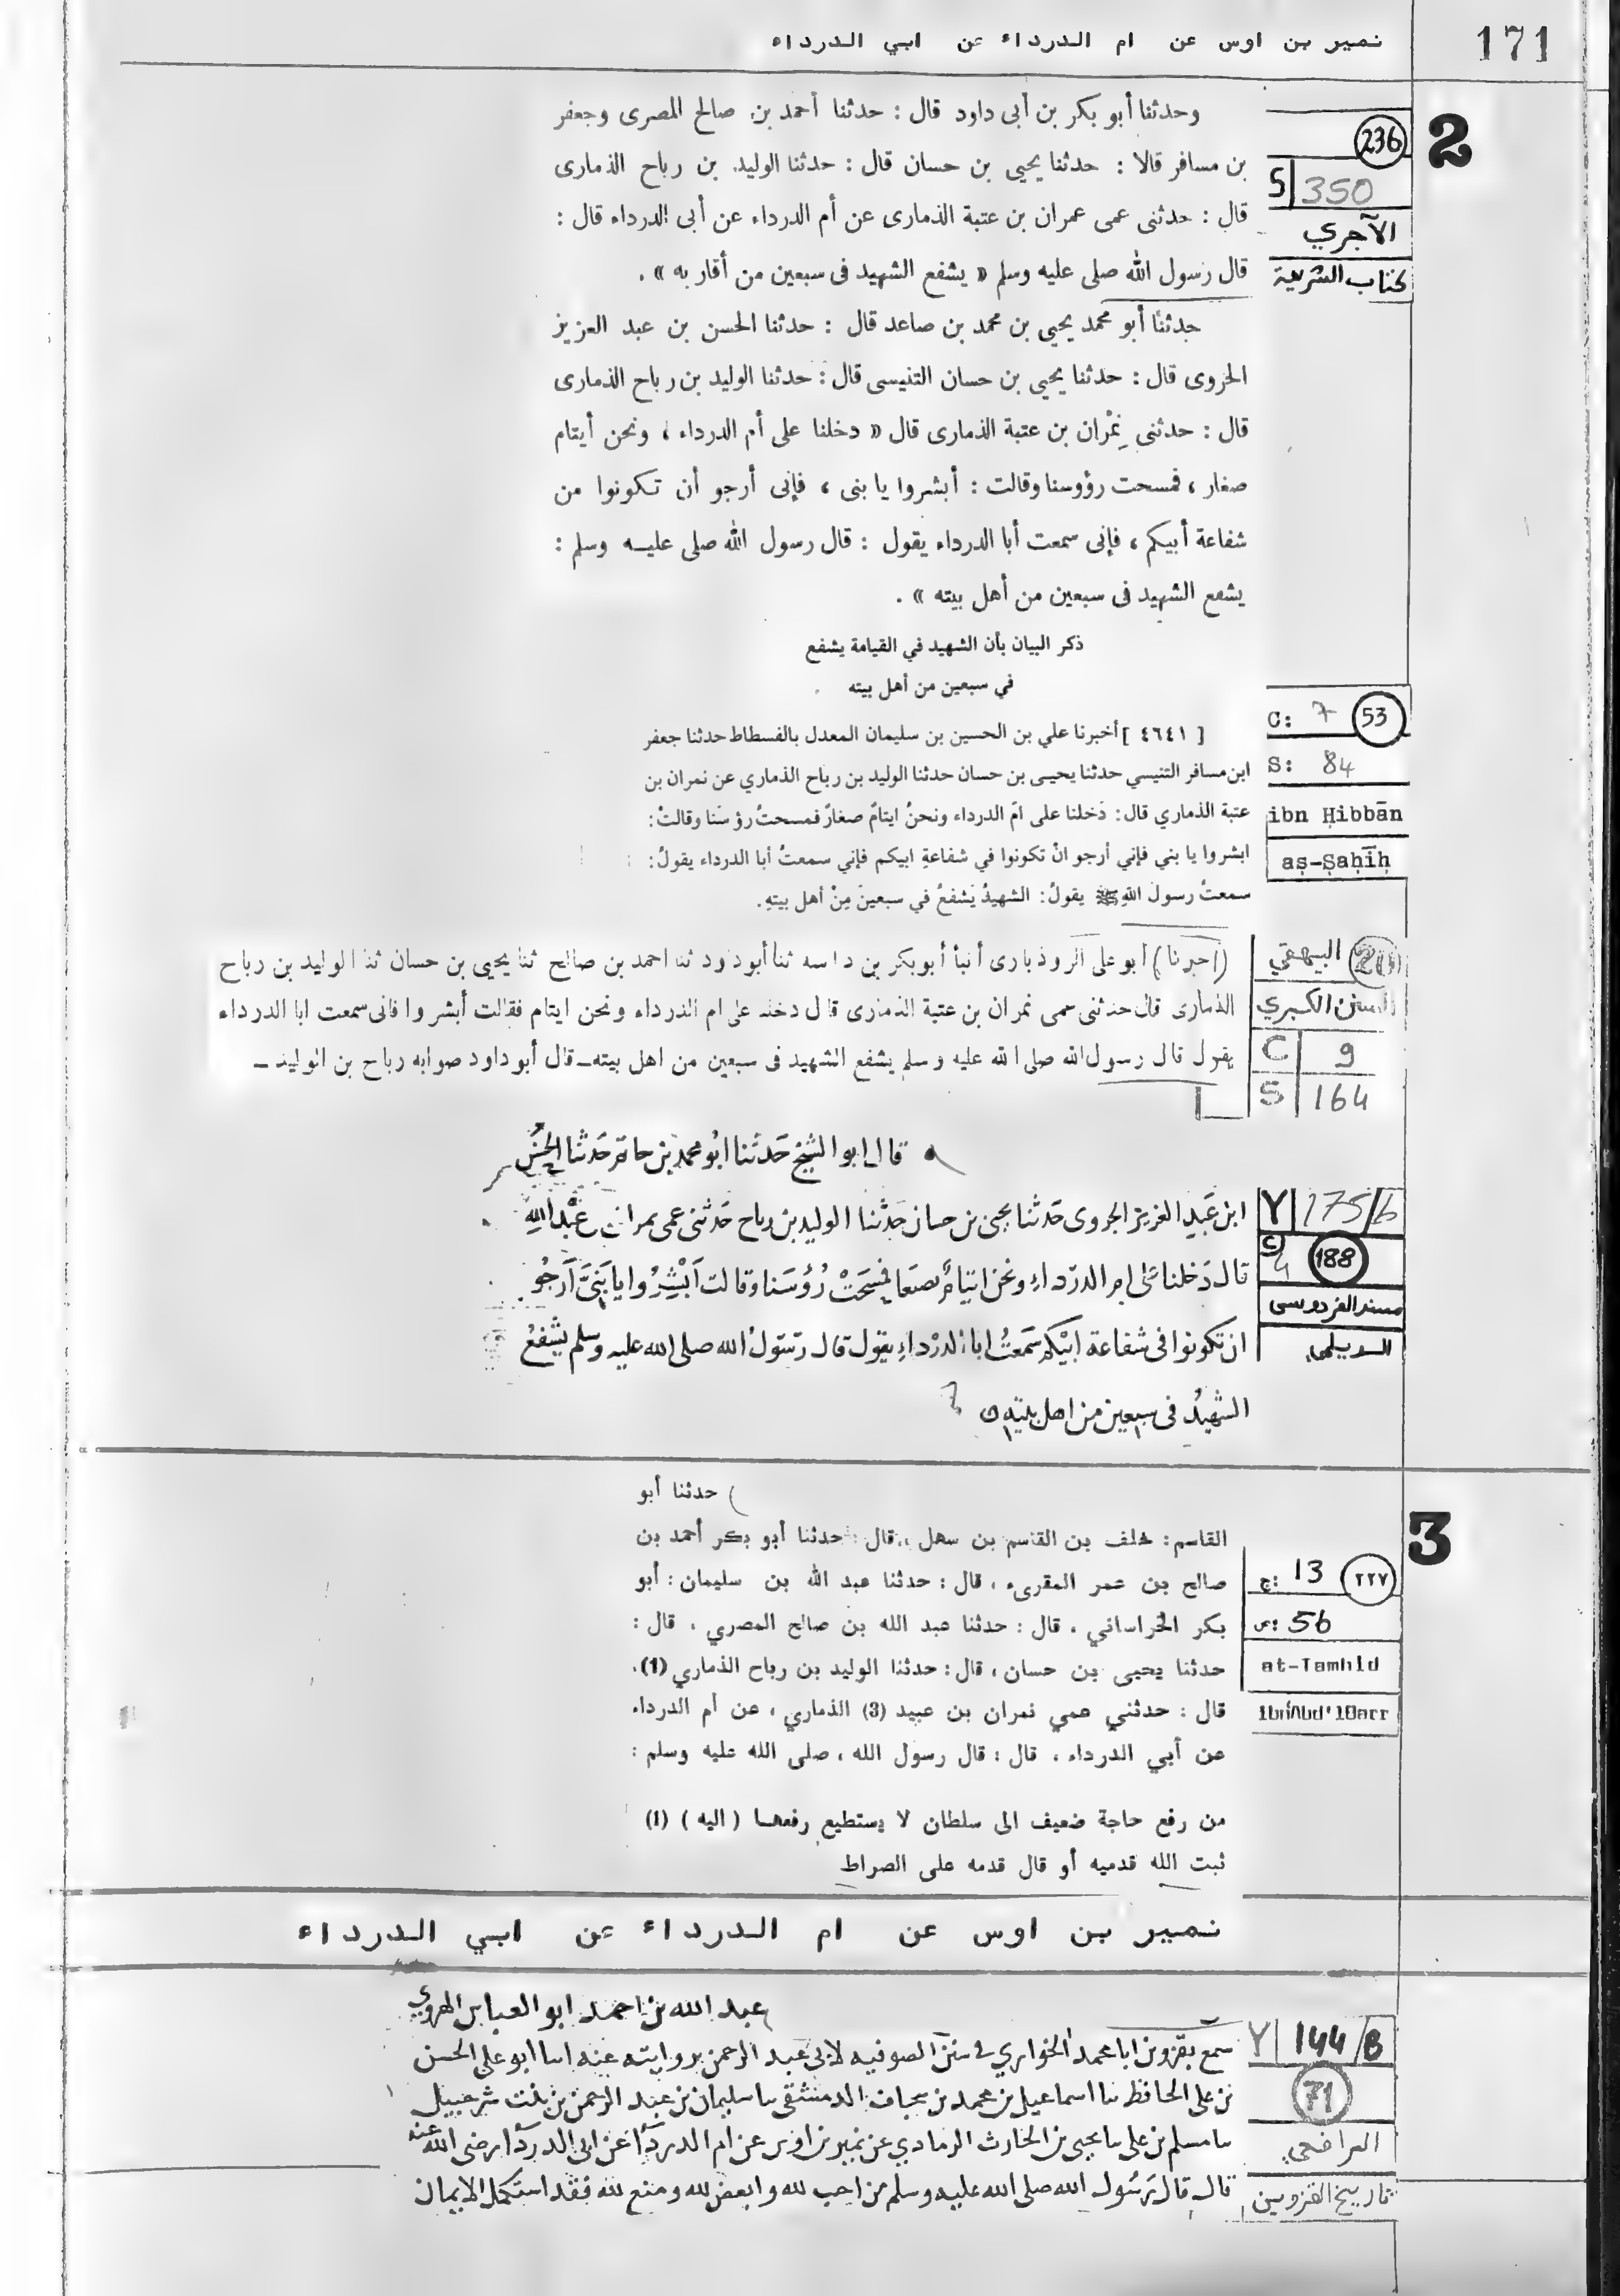 171
نمير بن اوس عن ام الدرداء عن ابي الدرداء
2
236
S 350
الآجري
كتاب الشريعة
وحدثنا أبو بكر بن أبى داود قال : حدثنا أحمد بن صالح المصرى وجعفر
بن مسافر قالا : حدثنا يحيى بن حسان قال : حدثنا الوليد بن رباح الذمارى
قال : حدثنى عمى عمران بن عتبة الذمارى عن أم الدرداء عن أبى الدرداء قال :
قال رسول الله صلى عليه وسلم « يشفع الشهيد فى سبعين من أقاربه » .
حدثنا أبو محمد يحيى بن محمد بن صاعد قال : حدثنا الحسن بن عبد العزيز
الجروى قال : حدثنا يحيى بن حسان التنيسى قال : حدثنا الوليد بن رباح الذمارى
قال : حدثنى نِمْران بن عتبة الذمارى قال « دخلنا على أم الدرداء ، ونحن أيتام
صغار ، فمسحت رؤوسنا وقالت : أبشروا يا بنى ، فإنى أرجو أن تكونوا من
شفاعة أبيكم ، فإنى سمعت أبا الدرداء يقول : قال رسول الله صلى عليه وسلم :
يشفع الشهيد فى سبعين من أهل بيته » .
ذكر البيان بأن الشهيد في القيامة يشفع
في سبعين من أهل بيته
C: 7 53
S: 84
ibn Ḥibbān
aṣ-Ṣaḥīḥ
[ ٤٦٤١ ] أخبرنا علي بن الحسين بن سليمان المعدل بالفسطاط حدثنا جعفر
ابن مسافر التنيسي حدثنا يحيى بن حسان حدثنا الوليد بن رباح الذماري عن نمران بن
عتبة الذماري قال: دَخلنا على امّ الدرداء ونحنُ ايتامٌ صغارٌ فمسحتْ رؤسَنا وقالتْ:
ابشروا يا بني فإني أرجو انْ تكونوا في شفاعةِ ابيكم فإني سمعتُ أبا الدرداء يقولُ:
سمعتُ رسولَ اللهِ ﷺ يقولُ: الشهيدُ يَشفعُ في سبعينَ مِنْ أهل بيتهِ.
البيهقي
السنن الكبري
C 9
S 164
(اخبرنا) أبو على الروذبارى أنبأ أبو بكر بن داسه ثنا أبو داود ثنا احمد بن صالح ثنا يحيى بن حسان ثنا الوليد بن رباح
الذمارى قال حدثنى عمى نمران بن عتبة الذمارى قال دخلنا على ام الدرداء ونحن ايتام فقالت أبشروا فانى سمعت ابا الدرداء
يقول قال رسول الله صلى الله عليه وسلم يشفع الشهيد فى سبعين من اهل بيته ــ قال أبو داود صوابه رباح بن الوليد ــ
قال ابو الشيخ حَدثنا ابُو محمد بن حاتم حَدثنا الحَسَن
Y 175/b
C 4 188
مسند الفردوسى
الديلمى
ابن عَبدِ العَزيز الجروى حَدثنا يحيى بن حسان حَدثنا الوليد بن رباح حَدثنى عمى نمران بن عَبْد اللهِ
قال دَخلنا على ام الدرداءِ ونحن ايتامٌ صغار فمسَحَتْ رُؤُسَنا وقالت اَبْشِرُوا يا بَنِىَّ اَرجُو
ان تكونوا فى شفاعة اَبِيْكم سَمعتُ ابا الدرْداءِ يقول قال رَسُولُ الله صلى الله عليه وسلم يشفعُ
الشهيدُ فى سبعين من اهل بيته
3
ج: 13 ٢٢٧
ص: 56
at-Tamhīd
ibn ʿAbd'lBarr
حدثنا أبو
القاسم: خلف بن القاسم بن سهل ، قال : حدثنا أبو بكر أحمد بن
صالح بن عمر المقرىء ، قال : حدثنا عبد الله بن سليمان: أبو
بكر الخراساني ، قال : حدثنا عبد الله بن صالح المصري ، قال :
حدثنا يحيى بن حسان ، قال : حدثنا الوليد بن رباح الذماري (1)،
قال : حدثني عمي نمران بن عبيد (3) الذماري ، عن أم الدرداء
عن أبي الدرداء ، قال : قال رسول الله ، صلى الله عليه وسلم :
من رفع حاجة ضعيف الى سلطان لا يستطيع رفعها ( اليه ) (1)
ثبت الله قدميه أو قال قدمه على الصراط
نمير بن اوس عن ام الدرداء عن ابي الدرداء
Y 144/B
71
الرافعي
تاريخ القزوين
عبد الله بن احمد ابو العباس الهروي
سمع بقزوين ابا محمد الخواري في سنن الصوفيه لابي عبد الرحمن بروايته عنه ابنا ابو علي الحسن
بن علي الحافظ نا اسماعيل بن محمد بن الدمشقى نا سليمان بن عبد الرحمن بن بنت شرحبيل
نا مسلم بن علي نا يحيى بن الحارث الرمادي عن نمير بن اوس عن ام الدرداء عن ابي الدرداء رضى الله عنه
قال قال رَسُول الله صلى الله عليه وسلم من احب لله وابغض لله ومنع لله فقد استكمل الايمان